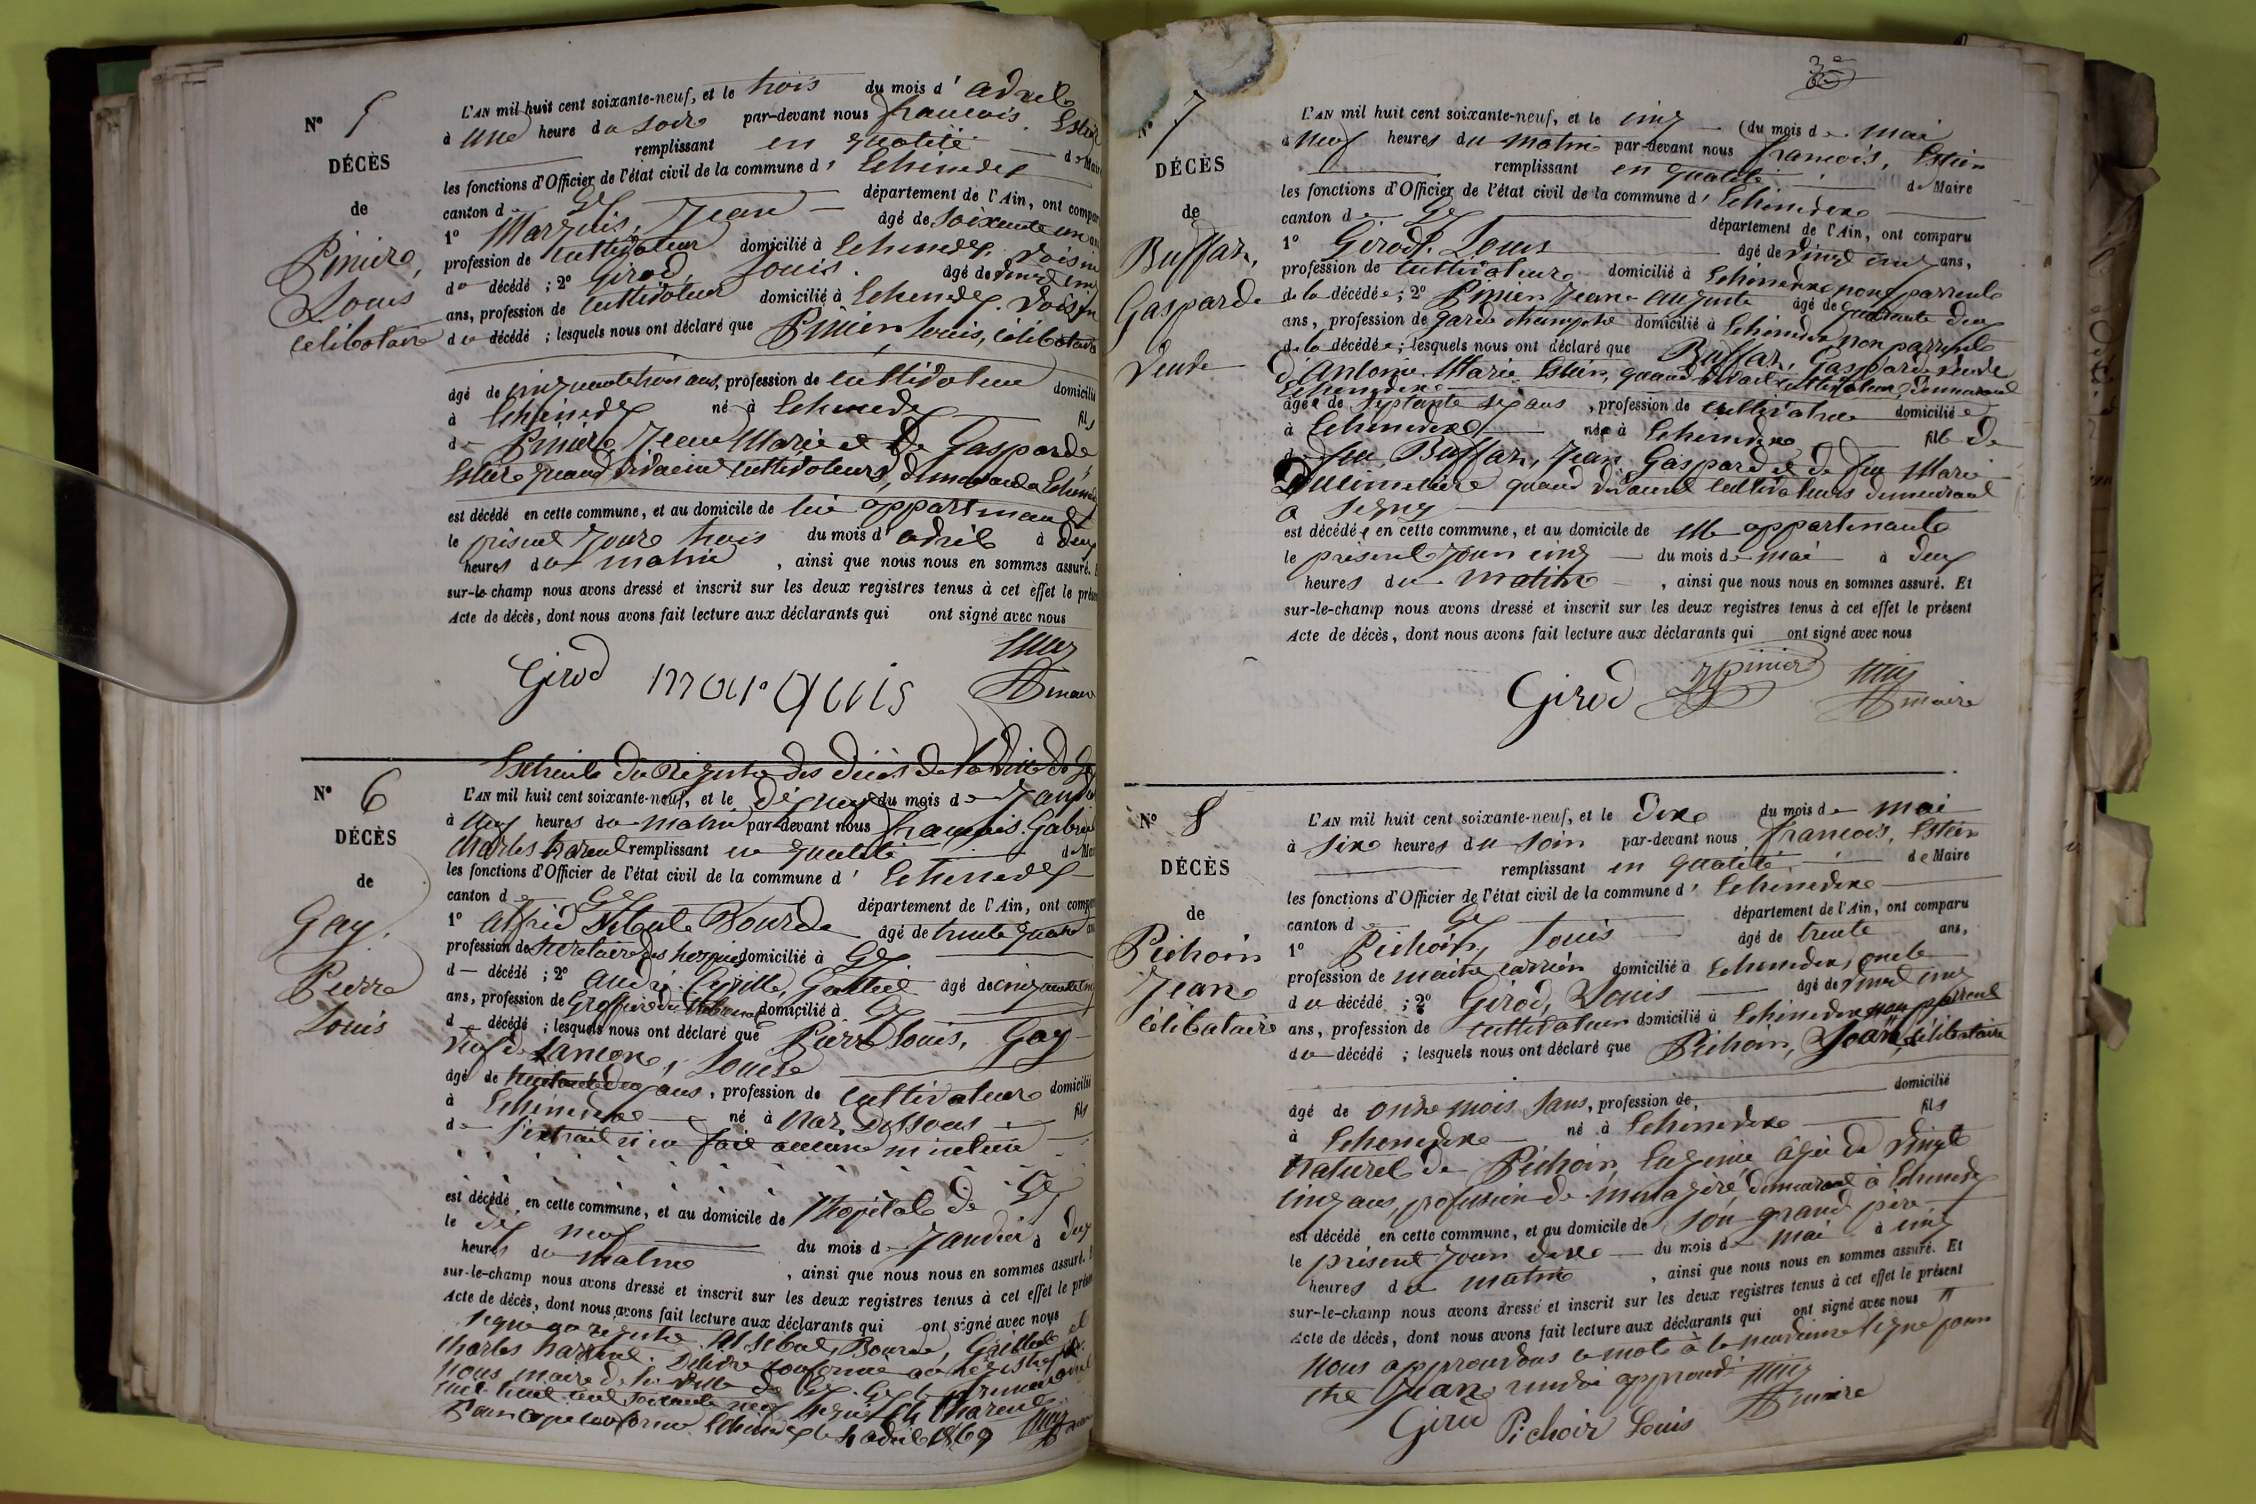 N° 5
DÉCÈS
de
Pinier,
Louis
célibataire
L'AN mil huit cent soixante-neuf, et le trois du mois d' avril
à une heure du soir par-devant nous françois, Estier
remplissant en qualité de Maire
les fonctions d'Officier de l'état civil de la commune d' Echenedex
canton de Gex département de l'Ain, ont compar
1° Marquis, Jean âgé de soixante un ans
profession de cultivateur domicilié à Echenedex voisin
du décédé ; 2° Girod, Louis. âgé de vingt cinq
ans, profession de cultivateur domicilié à Echenedex. voisin
du décédé ; lesquels nous ont déclaré que Pinier, Louis, célibataire
âgé de cinquante trois ans, profession de cultivateur domicilié
à Echenedex né à Echenedex fils
de Pinier, Jean Marie et de Gasparde
Estier quand vivaient cultivateurs, demeurand a Echened
est décédé en cette commune, et au domicile de lui appartenant
le présent jour trois du mois d' avril à deux
heures du matin , ainsi que nous nous en sommes assuré. E
sur-le-champ nous avons dressé et inscrit sur les deux registres tenus à cet effet le prése
Acte de décès, dont nous avons fait lecture aux déclarants qui ont signé avec nous
Girod marquis Estier maire
N° 6
DÉCÈS
de
Gay,
Pierre
Louis
Extraits du Régistre des décès de la ville de Gex
L'AN mil huit cent soixante-neuf, et le dix neuf du mois de Janvier
à neuf heures du matin par-devant nous françois Gabriel
Charles remplissant en qualité de Mai
les fonctions d'Officier de l'état civil de la commune d' Echenedex
canton de Gex département de l'Ain, ont compar
1° Alfred Bourde âgé de trente quatre an
profession de secretaire des hospices domicilié à Gex
d— décédé ; 2° André Cyrille, âgé de cinquante cinq
ans, profession de Greffier du tribunal domicilié à Gex
d— décédé ; lesquels nous ont déclaré que Pierre Louis, Gay
veuf de Lançon, Louise
âgé de huitante deux ans, profession de cultivateur domicilié
à Echenedex né à Naz, Dessous fils
de l'extrait n'en fait aucune
est décédé en cette commune, et au domicile de l'hopital de Gex
le dix neuf du mois de Janvier à deux
heures du matin , ainsi que nous nous en sommes assuré. E
sur-le-champ nous avons dressé et inscrit sur les deux registres tenus à cet effet le prése
Acte de décès, dont nous avons fait lecture aux déclarants qui ont signé avec nous
signé au registre Bourde, et
Charles Délivré conforme au régistre par
nous maire de la ville de Gex. Gex le premier avril
mil huit cent soixante neuf signé
Pour copie conforme Echenedex le 4 avril 1869
3e
N° 7
DÉCÈS
de
Buffar,
Gasparde
veuve
L'AN mil huit cent soixante-neuf, et le cinq du mois de mai
à neuf heures du matin par-devant nous francois, Estier
remplissant en qualité de Maire
les fonctions d'Officier de l'état civil de la commune d' Echenedexe
canton de Gex département de l'Ain, ont comparu
1° Girod, Louis âgé de vingt cinq ans,
profession de cultivateur domicilié à Echenedexe non parrente
de la décédée ; 2° Pinier Jean auguste âgé de quarante deux
ans, profession de garde champetre domicilié à Echenedex non parrente
de la décédée ; lesquels nous ont déclaré que Buffar, Gasparde veuve
d'Antoine Marie Estier, quand vivait cultivateur, demeurand
Echenedexe
âgée de septante six ans , profession de cultivatrice domiciliée
à Echenedexe née à Echenedexe fille de
feu, Buffar, Jean Gaspard et de feu Marie
Ducimetière quand vivaient cultivateurs demeurant
a Segny
est décédée en cette commune, et au domicile de elle appartenante
le présent jour cinq du mois de mai à deux
heures du matin , ainsi que nous nous en sommes assuré. Et
sur-le-champ nous avons dressé et inscrit sur les deux registres tenus à cet effet le présent
Acte de décès, dont nous avons fait lecture aux déclarants qui ont signé avec nous
Girod Pinier Estier maire
N° 8
DÉCÈS
de
Pichoir
Jean
célibataire
L'AN mil huit cent soixante-neuf, et le dixe du mois de mai
à sixe heures du soir par-devant nous francois, Estier
remplissant en qualité de Maire
les fonctions d'Officier de l'état civil de la commune d' Echenedexe
canton de Gex département de l'Ain, ont comparu
1° Pichoir, Louis âgé de trente ans,
profession de maitre carrier domicilié à Echenedex, oncle
du décédé ; 2° Girod, Louis âgé de vingt cinq
ans, profession de cultivateur domicilié à Echenedexe non parrent
du décédé ; lesquels nous ont déclaré que Pichoir, Jean, célibataire
âgé de onze mois, sans, profession de, domicilié
à Echenedexe né à Echenedexe fils
naturel de Pichoir, Eugenie âgée de vingt
cinq ans, profession de menagère, demeurant à Echenedex
est décédé en cette commune, et au domicile de son grand père
le présent jour dixe du mois de mai à cinq
heures du matin , ainsi que nous nous en sommes assuré. Et
sur-le-champ nous avons dressé et inscrit sur les deux registres tenus à cet effet le présent
Acte de décès, dont nous avons fait lecture aux déclarants qui ont signé avec nous
Nous approuvons le mots à la neuvième ligne
Jean approuvé Estier
maire
Girod Pichoir Louis